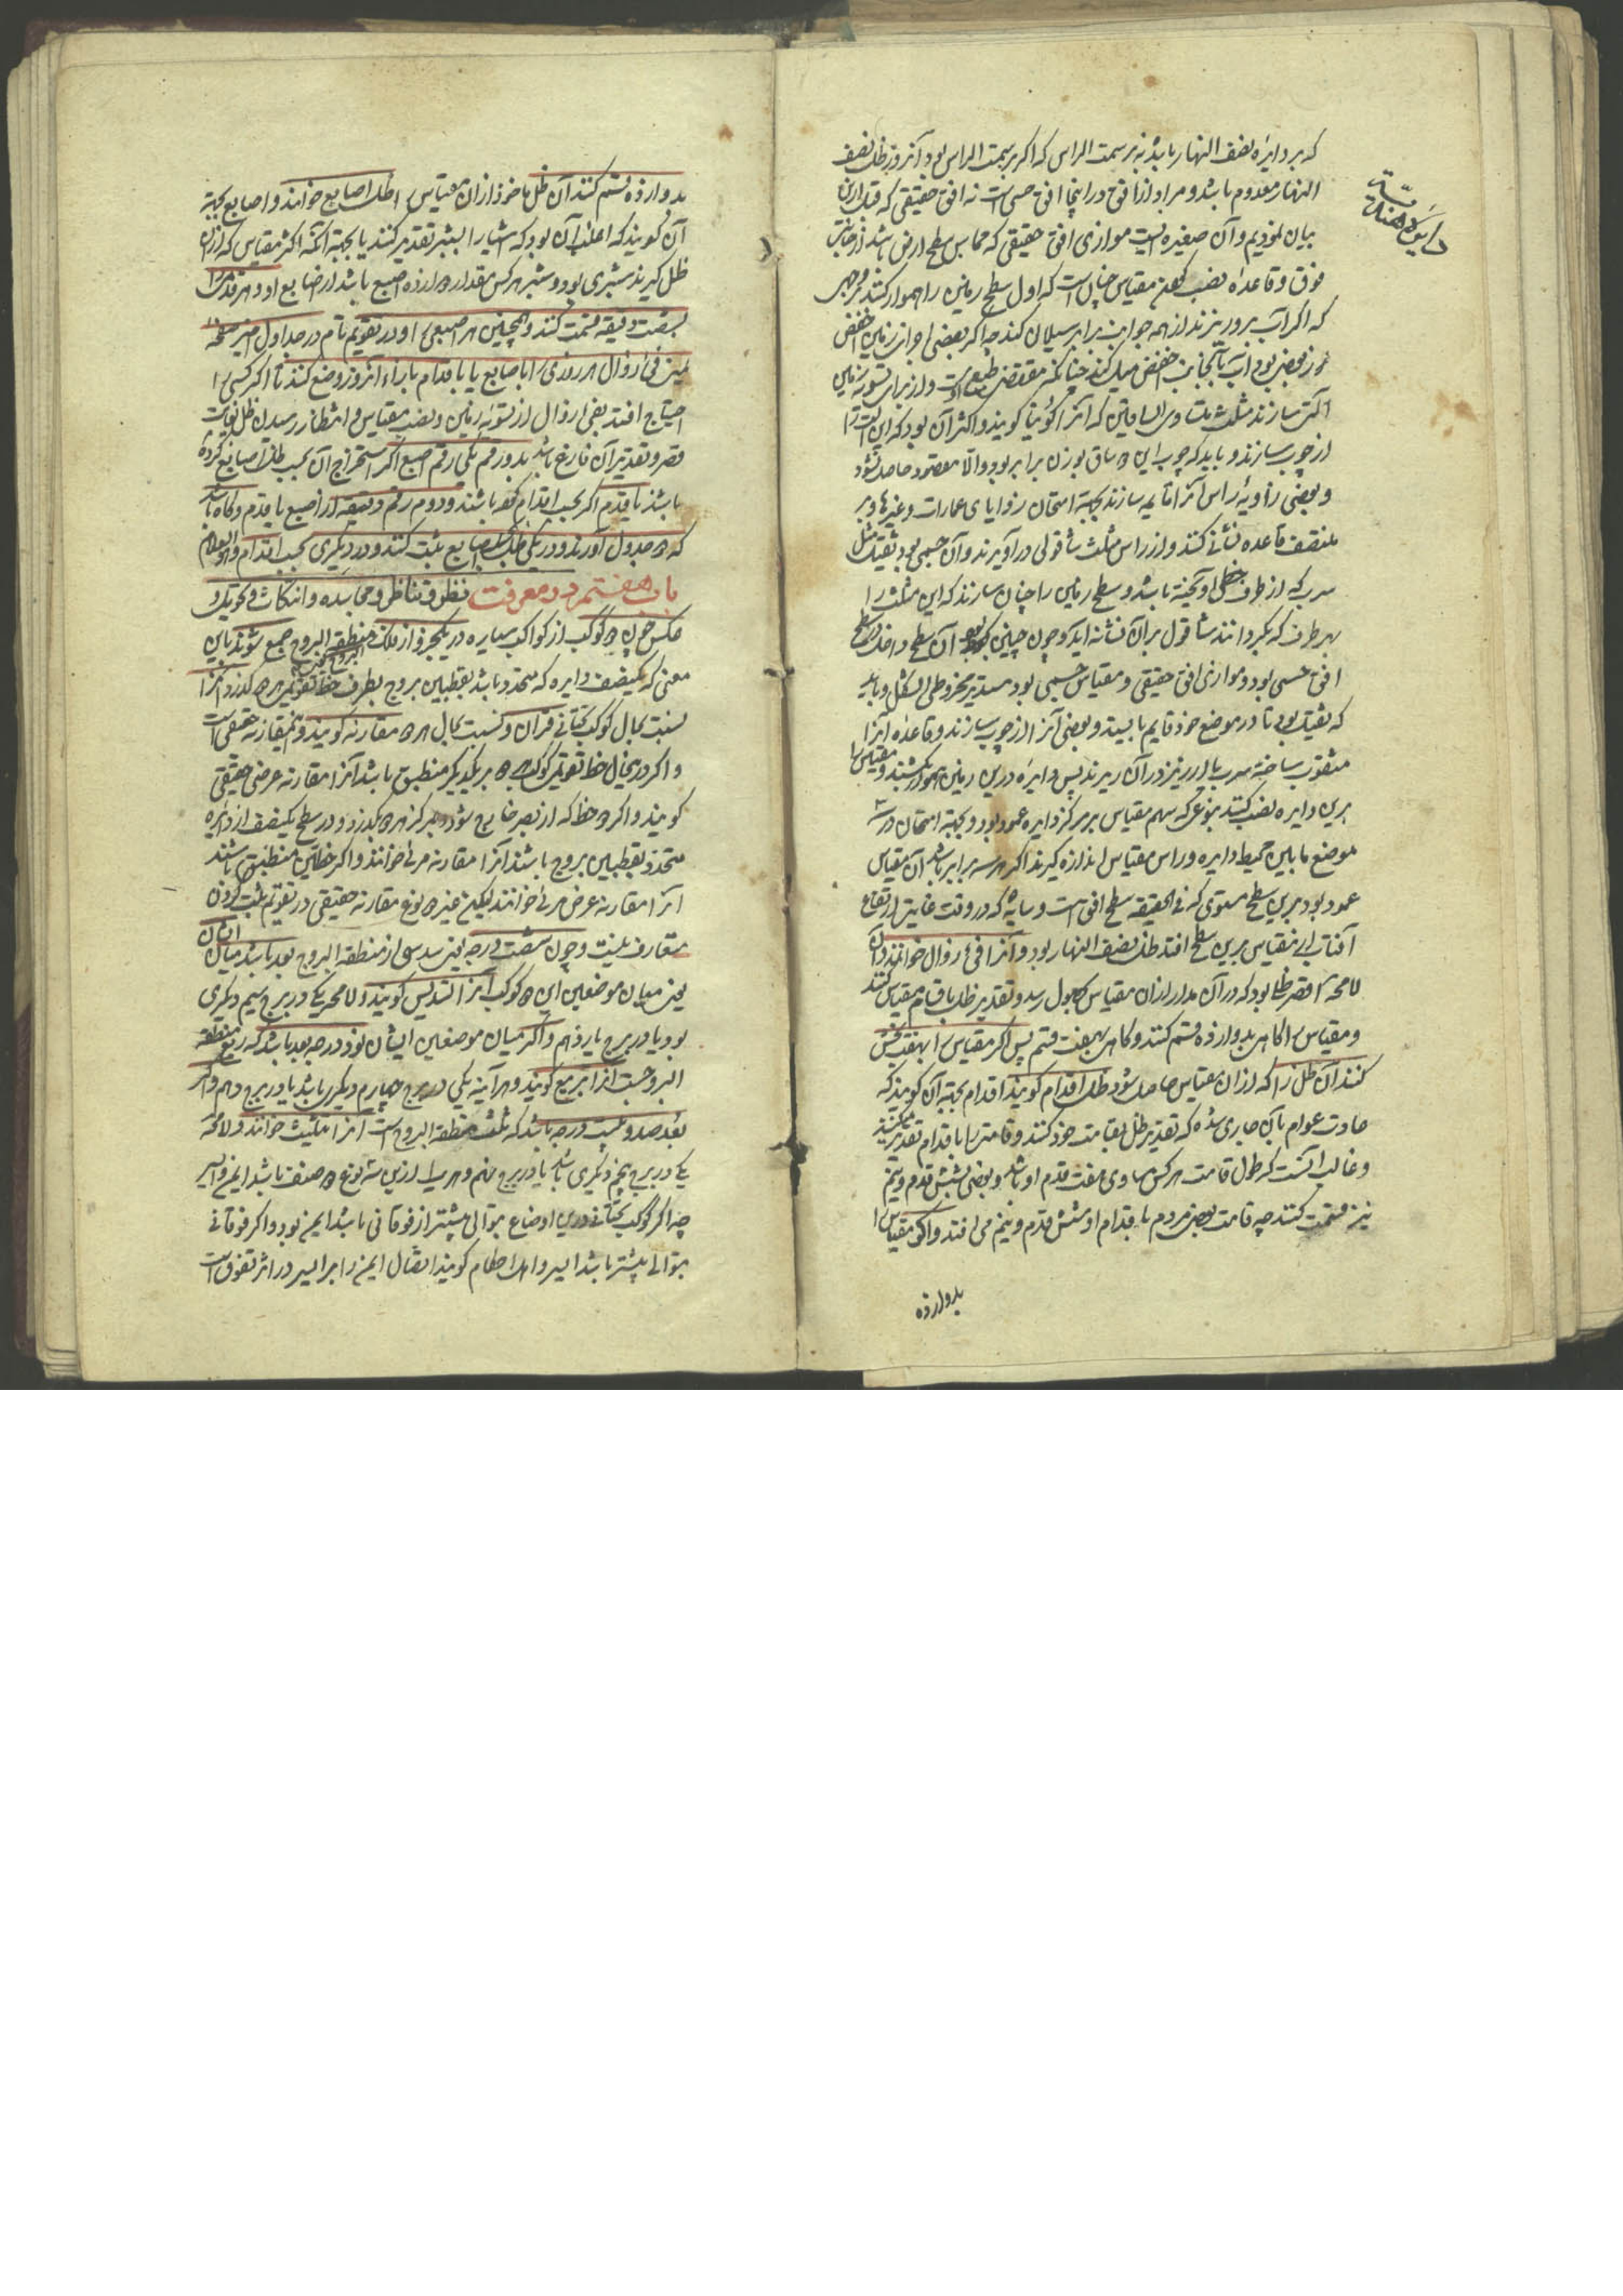 که بر دایره نصف النهار باشد نه بر سمت الراس که اگر بر سمت الراس بود آنروز ظل نصف
النهار معدوم باشد و مراد از افق در اینجا افق حسی است نه افق حقیقی که قبل ازین
بیان نمودیم و آن صغیره ایست موازی افق حقیقی که مماس سطح ارض باشد از جانب
فوق و قاعده نصب کردن مقیاس چنان است که اول سطح زمین را هموار کنند بر وجهی
که اگر آب برو ریزند از همه جوانب برابر سیلان کند چه اگر بعضی اجزای زمین اخفض
از بعضی بود آب بآنجانب اخفض میل کند چنانکه مقتضی طبع اوست و از برای تسویه زمین
آلتی سازند مثلث متساوی الساقین که آنرا کونیا گویند و اکثر آن بود که این آلت را
از چوب سازند و باید که چوب این دو ساق بوزن برابر بود والا مقصود حاصل نشود
و بعضی زاویه راس آنرا قایمه سازند بجهة امتحان زوایای عمارات و غیرها و بر
منتصف قاعده نشانی کنند و از راس مثلث شاقولی درآویزند و آن جسمی بود ثقیل مثل
سرب که از طرف خطی آویخته باشد و سطح زمین را چنان سازند که این مثلث را
بهر طرف که بگردانند شاقول بران نشانه آید و چون چنین بود آن سطح داخل سطح
افق حسی بود و موازی افق حقیقی و مقیاس جسمی بود مستدیر مخروطی الشکل و باید
که ثقیل بود تا در موضع خود قایم بایستد و بعضی آنرا از چوب سازند و قاعده آنرا
مثقوب ساخته سرب یا ارزیز در آن ریزند پس دایره درین زمین هموار بکشند و مقیاس را
برین دایره نصب کنند بنوعی که سهم مقیاس بر مرکز دایره عمود بود و بجهة امتحان در سه
موضع مابین محیط دایره و راس مقیاس اندازه گیرند اگر هر سه برابر باشد آن مقیاس
عمود بود برین سطح مستوی که فی الحقیقه سطح افق است و سایه که در وقت غایت ارتفاع
آفتاب از مقیاس برین سطح افتد ظل نصف النهار بود و آنرا فی زوال خوانند و آن
لامحه اقصر ظلی بود که در آن مدار از آن مقیاس بحصول رسد و تقدیر ظل باقسام مقیاس کنند
و مقیاس را گاهی بدوازده قسم کنند و گاهی بهفت قسم پس اگر مقیاس را بهفت بخش
کنند آن ظل را که از آن مقیاس حاصل شود ظل اقدام گویند اقدام بجهة آن گویند که
عادت عوام بآن جاری شده که تقدیر ظل بقامت خود کنند و قامت را باقدام تقدیر میکنند
و غالب آنست که طول قامت هر کس مساوی هفت قدم او باشد و بعضی بشش قدم و نیم
نیز قسمت کنند چه قامت بعضی مردم باقدام او شش قدم و نیم می افتد و اگر مقیاس را
بدوازده
دایره هندیه
بدوازده قسم کنند آن ظل ماخوذ از آن مقیاس را ظل اصابع خوانند و اصابع بجهة
آن گویند که اغلب آن بود که اشیا را بشبر تقدیر کنند یا بجهة آنکه اکثر مقیاس که ازان
ظل گیرند شبری بود و شبر هر کس بمقدار دوازده اصبع باشد از اصابع او و هر قدمی را
بشصت دقیقه قسمت کنند و همچنین هر اصبعی را و در تقویم تام در جداول
یمین فی زوال هر روزی را باصابع یا باقدام بازاء آنروز وضع کنند تا اگر کسی را
احتیاج افتد بفی زوال از تسویه زمین و نصب مقیاس و انتظار رسیدن ظل بغایت
قصر و تقدیر آن فارغ باشد بدو رقم یکی رقم اصبع اگر استخراج آن بحسب ظل اصابع کرده
باشند یا قدم اگر بحسب اقدام کرده باشند و دوم رقم دقیقه از اصبع یا قدم و گاه باشد
که دو جدول آورند و در یکی ظل بحسب اصابع ثبت کنند و در دیگری بحسب اقدام والسلام
باب هفتم در معرفت نظر و تناظر و مجاسده و اتکاث و تحویل و
عکس چون دو کوکب از کواکب سیاره در یکجزو از فلک منطقة البروج جمع شوند باین
معنی که یکنصف دایره که متحدد باشد بقطبین بروج بطرف خط تقویم هر دو گذرد آنرا
نسبت بحال کوکب تحتانی قران و نسبت بحال هر دو مقارنه گویند و این مقارنه حقیقی است
و اگر درینحال خط تقویم کوکب دو بر یکدیگر منطبق باشد آنرا مقارنه عرضی حقیقی
گویند و اگر دو خط که از بصر خارج شود و بمرکز هر دو بگذرد و در سطح یکنصف از دایره
متحدد بقطبین بروج باشند آنرا مقارنه مرئی خوانند و اگر خطین منطبق باشند
آنرا مقارنه عرض مرئی خوانند لیکن غیر دو نوع مقارنه حقیقی در تقویم ثبت کردن
متعارف نیست و چون شصت درجه یعنی سدسی از منطقة البروج بعد باشد میان ایشان
یعنی میان موضعین این دو کوکب آنرا تسدیس گویند و لامحه یکی در برج سیم دیگری
بود یا در برج یازدهم و اگر میان موضعین ایشان نود درجه بعد باشد که ربع منطقة
البروجست آنرا تربیع گویند و هر آینه یکی در برج چهارم دیگری باشد یا در برج دهم و اگر
بعد صد و بیست درجه باشد که ثلث منطقة البروج است آنرا تثلیث خوانند و لامحه
یکی در برج پنجم دیگری باشد یا در برج نهم و هر یک را ازین سه نوع دو صنف باشد ایمن و ایسر
چه اگر کوکب تحتانی درین اوضاع بتوالی پیشتر از فوقانی باشد ایمن بود و اگر فوقانی
بتوالی پیشتر باشد ایسر و اهل احکام گویند اتصال ایمن را بر ایسر در اثر تفوق است